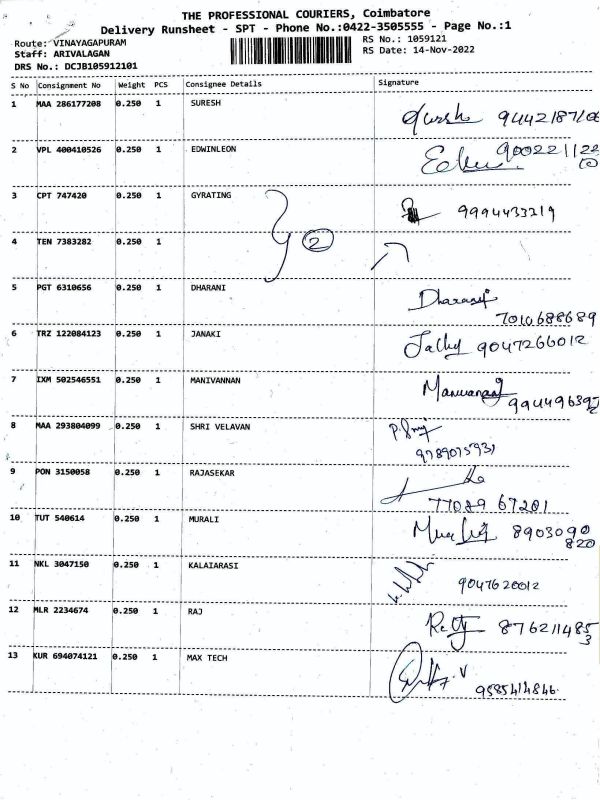 THE PROFESSIONAL COURIERS, Coimbatore
Delivery Runsheet - SPT - Phone No.:0422-3505555 - Page No.:1
Route: VINAYAGAPURAM
Staff: ARIVALAGAN
DRS No.: DCJB105912101
RS No.: 1059121
RS Date: 14-Nov-2022
S No Consignment No Weight PCS Consignee Details Signature
1 MAA 286177208 0.250 1 SURESH
2 VPL 400410526 0.250 1 EDWINLEON
3 CPT 747420 0.250 1 GYRATING 9994433219
2
4 TEN 7383282 0.250 1
5 PGT 6310656 0.250 1 DHARANI
7010688689
6 TRZ 122084123 0.250 1 JANAKI 9047266012
7 IXM 502546551 0.250 1 MANIVANNAN
8 MAA 293804099 0.250 1 SHRI VELAVAN
9789075931
9 PON 3150058 0.250 1 RAJASEKAR
77089 67201
10 TUT 540614 0.250 1 MURALI 8903090
820
11 NKL 3047150 0.250 1 KALAIARASI 9047620012
12 MLR 2234674 0.250 1 RAJ 876211485
3
13 KUR 694074121 0.250 1 MAX TECH
9585414846